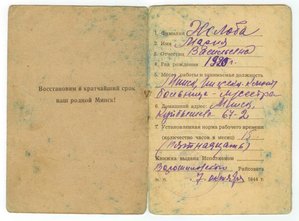 Восстановим в кратчайший срок
наш родной Минск!
1. Фамилия Жлоба
2. Имя Мария
3. Отчество
4. Год рождения
5. Место работы и занимаемая должность
больница - медсестра
6. Домашний адрес: Минск
67-2
7. Установленная норма рабочего времени
(количество часов в месяц) 15
(Пятнадцать)
Книжка выдана Исполкомом
Ворошиловского Райсовета
7 октября 1944 г.